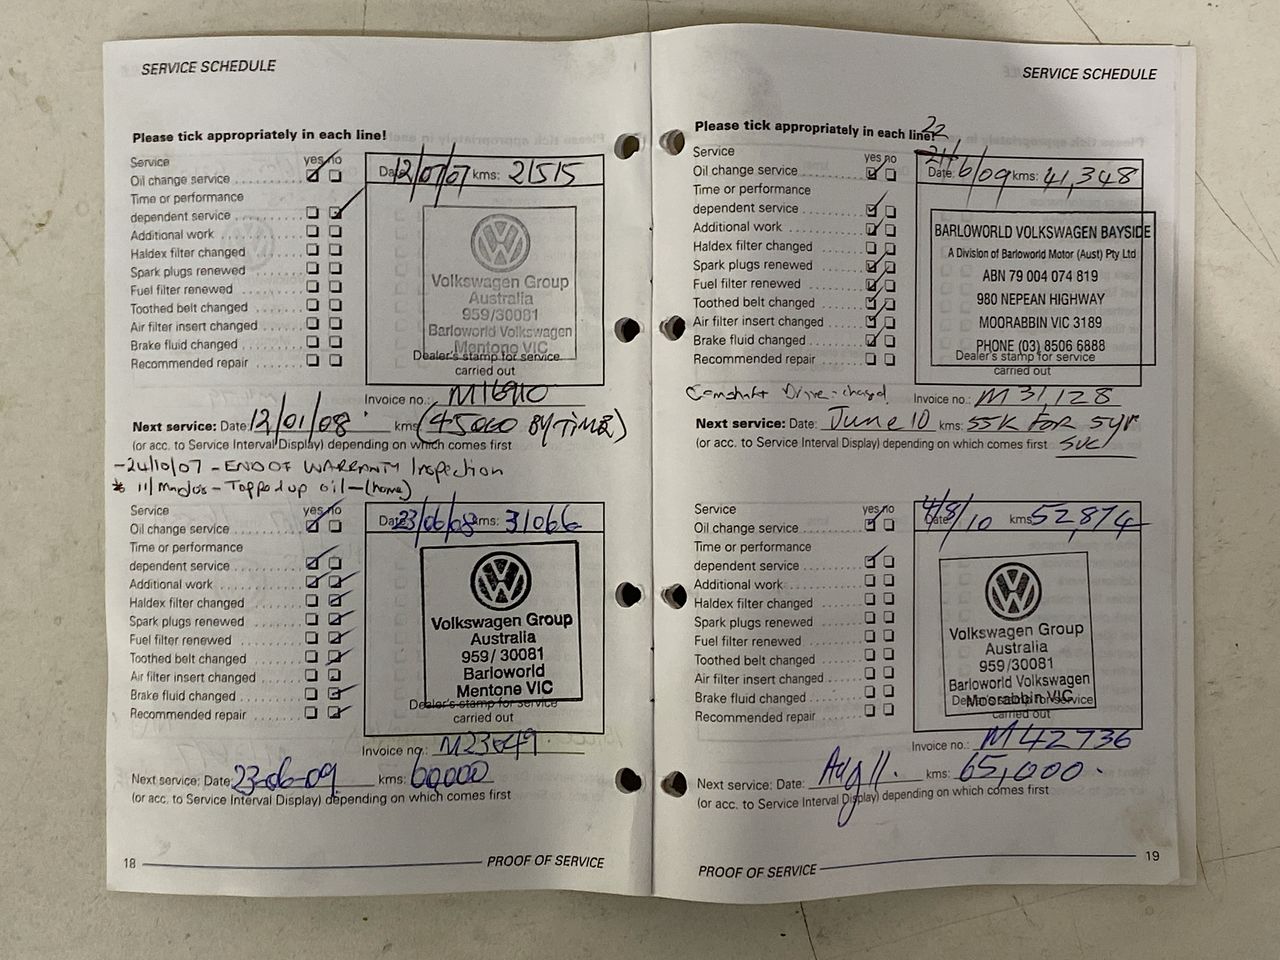 SERVICE SCHEDULE
Please tick appropriately in each line!
Service yes no
Oil change service
Time or performance
dependent service
Additional work
Haldex filter changed
Spark plugs renewed
Fuel filter renewed
Toothed belt changed
Air filter insert changed
Brake fluid changed
Recommended repair
Date: 12/07/07 kms: 21515
Volkswagen Group
Australia
959/30081
Barloworld Volkswagen
Mentone VIC
Dealer's stamp for service
carried out
Invoice no.: M16910
Next service: Date: 12/01/08 kms (45000 BY TIME)
(or acc. to Service Interval Display) depending on which comes first
-24/10/07 - END OF WARRANTY Inspection
* 11/Mar/08 - Topped up oil - (home)
Service yes no
Oil change service
Time or performance
dependent service
Additional work
Haldex filter changed
Spark plugs renewed
Fuel filter renewed
Toothed belt changed
Air filter insert changed
Brake fluid changed
Recommended repair
Date: 23/06/08 kms: 31066
Volkswagen Group
Australia
959/30081
Barloworld
Mentone VIC
Dealer's stamp for service
carried out
Invoice no.: M23649
Next service: Date: 23-06-09 kms: 60000
(or acc. to Service Interval Display) depending on which comes first
18 PROOF OF SERVICE
SERVICE SCHEDULE
Please tick appropriately in each line!
22
Service yes no
Oil change service
Time or performance
dependent service
Additional work
Haldex filter changed
Spark plugs renewed
Fuel filter renewed
Toothed belt changed
Air filter insert changed
Brake fluid changed
Recommended repair
Date: /6/09 kms: 41,348
BARLOWORLD VOLKSWAGEN BAYSIDE
A Division of Barloworld Motor (Aust) Pty Ltd
ABN 79 004 074 819
980 NEPEAN HIGHWAY
MOORABBIN VIC 3189
PHONE (03) 8506 6888
Dealer's stamp for service
carried out
Camshaft Drive - changed
Invoice no.: M31,128
Next service: Date: June 10 kms: 55K FOR 5yr
(or acc. to Service Interval Display) depending on which comes first
SVC
Service yes no
Oil change service
Time or performance
dependent service
Additional work
Haldex filter changed
Spark plugs renewed
Fuel filter renewed
Toothed belt changed
Air filter insert changed
Brake fluid changed
Recommended repair
Date: 4/8/10 kms 52,874
Volkswagen Group
Australia
959/30081
Barloworld Volkswagen
Moorabbin VIC
Dealer's stamp for service
carried out
Invoice no.: M42736
Next service: Date: Aug 11. kms: 65,000.
(or acc. to Service Interval Display) depending on which comes first
PROOF OF SERVICE 19